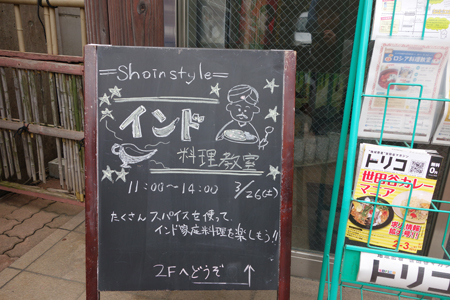 =Shoinstyle=
インド
料理教室
11:00~14:00 3/26(土)
たくさんスパイスを使って、
インド家庭料理を楽しもう!!
2Fへどうぞ
ロシア料理教室
トリコ
世田谷カレー
マニア
2-3
トリコ